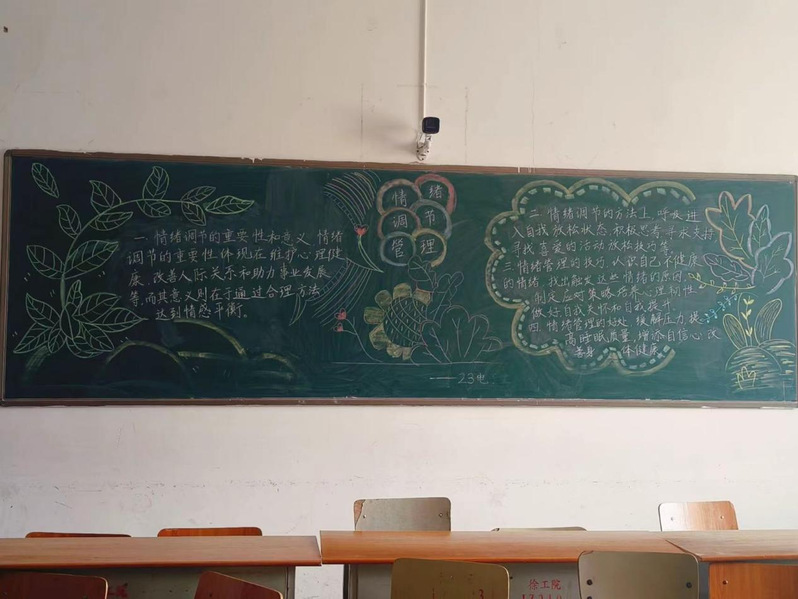 一 情绪调节的重要性和意义 情绪
调节的重要性体现在维护心理健
康、改善人际关系和助力事业发展
等,而其意义则在于通过合理方法
达到情感平衡。
情绪
调节
管理
23电
二 情绪调节的方法上 呼吸进
入自我放松状态 积极思考 寻求支持
寻找喜爱的活动 放松技巧等
三 情绪管理的技巧 认识自己不健康
的情绪 找出触发这些情绪的原因
制定应对策略 培养心理韧性
做好自我关怀和自我提升
四 情绪管理的好处 缓解压力 提
高睡眠质量,增添自信心 改
善身 体健康
徐工院